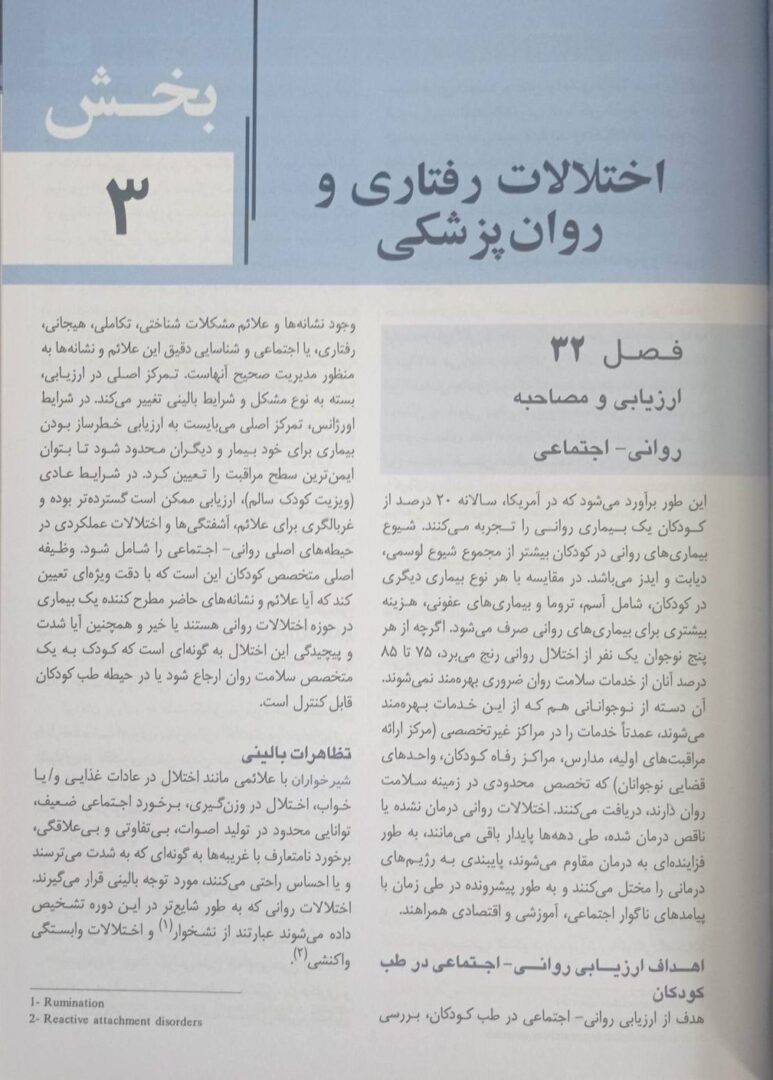 بخش
۳
اختلالات رفتاری و
روان‌پزشکی
فصل ۳۲
ارزیابی و مصاحبه
روانی- اجتماعی
این طور برآورد می‌شود که در آمریکا، سالانه ۲۰ درصد از
کودکان یک بیماری روانی را تجربه می‌کنند. شیوع
بیماری‌های روانی در کودکان بیشتر از مجموع شیوع لوسمی،
دیابت و ایدز می‌باشد. در مقایسه با هر نوع بیماری دیگری
در کودکان، شامل آسم، تروما و بیماری‌های عفونی، هزینه
بیشتری برای بیماری‌های روانی صرف می‌شود. اگرچه از هر
پنج نوجوان یک نفر از اختلال روانی رنج می‌برد، ۷۵ تا ۸۵
درصد آنان از خدمات سلامت روان ضروری بهره‌مند نمی‌شوند.
آن دسته از نوجوانانی هم که از این خدمات بهره‌مند
می‌شوند، عمدتاً خدمات را در مراکز غیرتخصصی (مرکز ارائه
مراقبت‌های اولیه، مدارس، مراکز رفاه کودکان، واحدهای
قضایی نوجوانان) که تخصص محدودی در زمینه سلامت
روان دارند، دریافت می‌کنند. اختلالات روانی درمان نشده یا
ناقص درمان شده، طی دهه‌ها پایدار باقی می‌مانند، به طور
فزاینده‌ای به درمان مقاوم می‌شوند، پایبندی به رژیم‌های
درمانی را مختل می‌کنند و به طور پیشرونده در طی زمان با
پیامدهای ناگوار اجتماعی، آموزشی و اقتصادی همراهند.
اهداف ارزیابی روانی- اجتماعی در طب
کودکان
هدف از ارزیابی روانی- اجتماعی در طب کودکان، بررسی
وجود نشانه‌ها و علائم مشکلات شناختی، تکاملی، هیجانی،
رفتاری، یا اجتماعی و شناسایی دقیق این علائم و نشانه‌ها به
منظور مدیریت صحیح آنهاست. تمرکز اصلی در ارزیابی،
بسته به نوع مشکل و شرایط بالینی تغییر می‌کند. در شرایط
اورژانس، تمرکز اصلی می‌بایست به ارزیابی خطرساز بودن
بیماری برای خود بیمار و دیگران محدود شود تا بتوان
ایمن‌ترین سطح مراقبت را تعیین کرد. در شرایط عادی
(ویزیت کودک سالم)، ارزیابی ممکن است گسترده‌تر بوده و
غربالگری برای علائم، آشفتگی‌ها و اختلالات عملکردی در
حیطه‌های اصلی روانی- اجتماعی را شامل شود. وظیفه
اصلی متخصص کودکان این است که با دقت ویژه‌ای تعیین
کند که آیا علائم و نشانه‌های حاضر مطرح کننده یک بیماری
در حوزه اختلالات روانی هستند یا خیر و همچنین آیا شدت
و پیچیدگی این اختلال به گونه‌ای است که کودک به یک
متخصص سلامت روان ارجاع شود یا در حیطه طب کودکان
قابل کنترل است.
تظاهرات بالینی
شیرخواران با علائمی مانند اختلال در عادات غذایی و/یا
خواب، اختلال در وزن‌گیری، برخورد اجتماعی ضعیف،
توانایی محدود در تولید اصوات، بی‌تفاوتی و بی‌علاقگی،
برخورد نامتعارف با غریبه‌ها به گونه‌ای که به شدت می‌ترسند
و یا احساس راحتی می‌کنند، مورد توجه بالینی قرار می‌گیرند.
اختلالات روانی که به طور شایع‌تر در این دوره تشخیص
داده می‌شوند عبارتند از نشخوار(۱) و اختلالات وابستگی
واکنشی(۲).
1- Rumination
2- Reactive attachment disorders